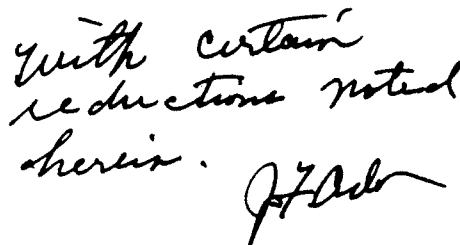 with certain
reductions noted
herein.